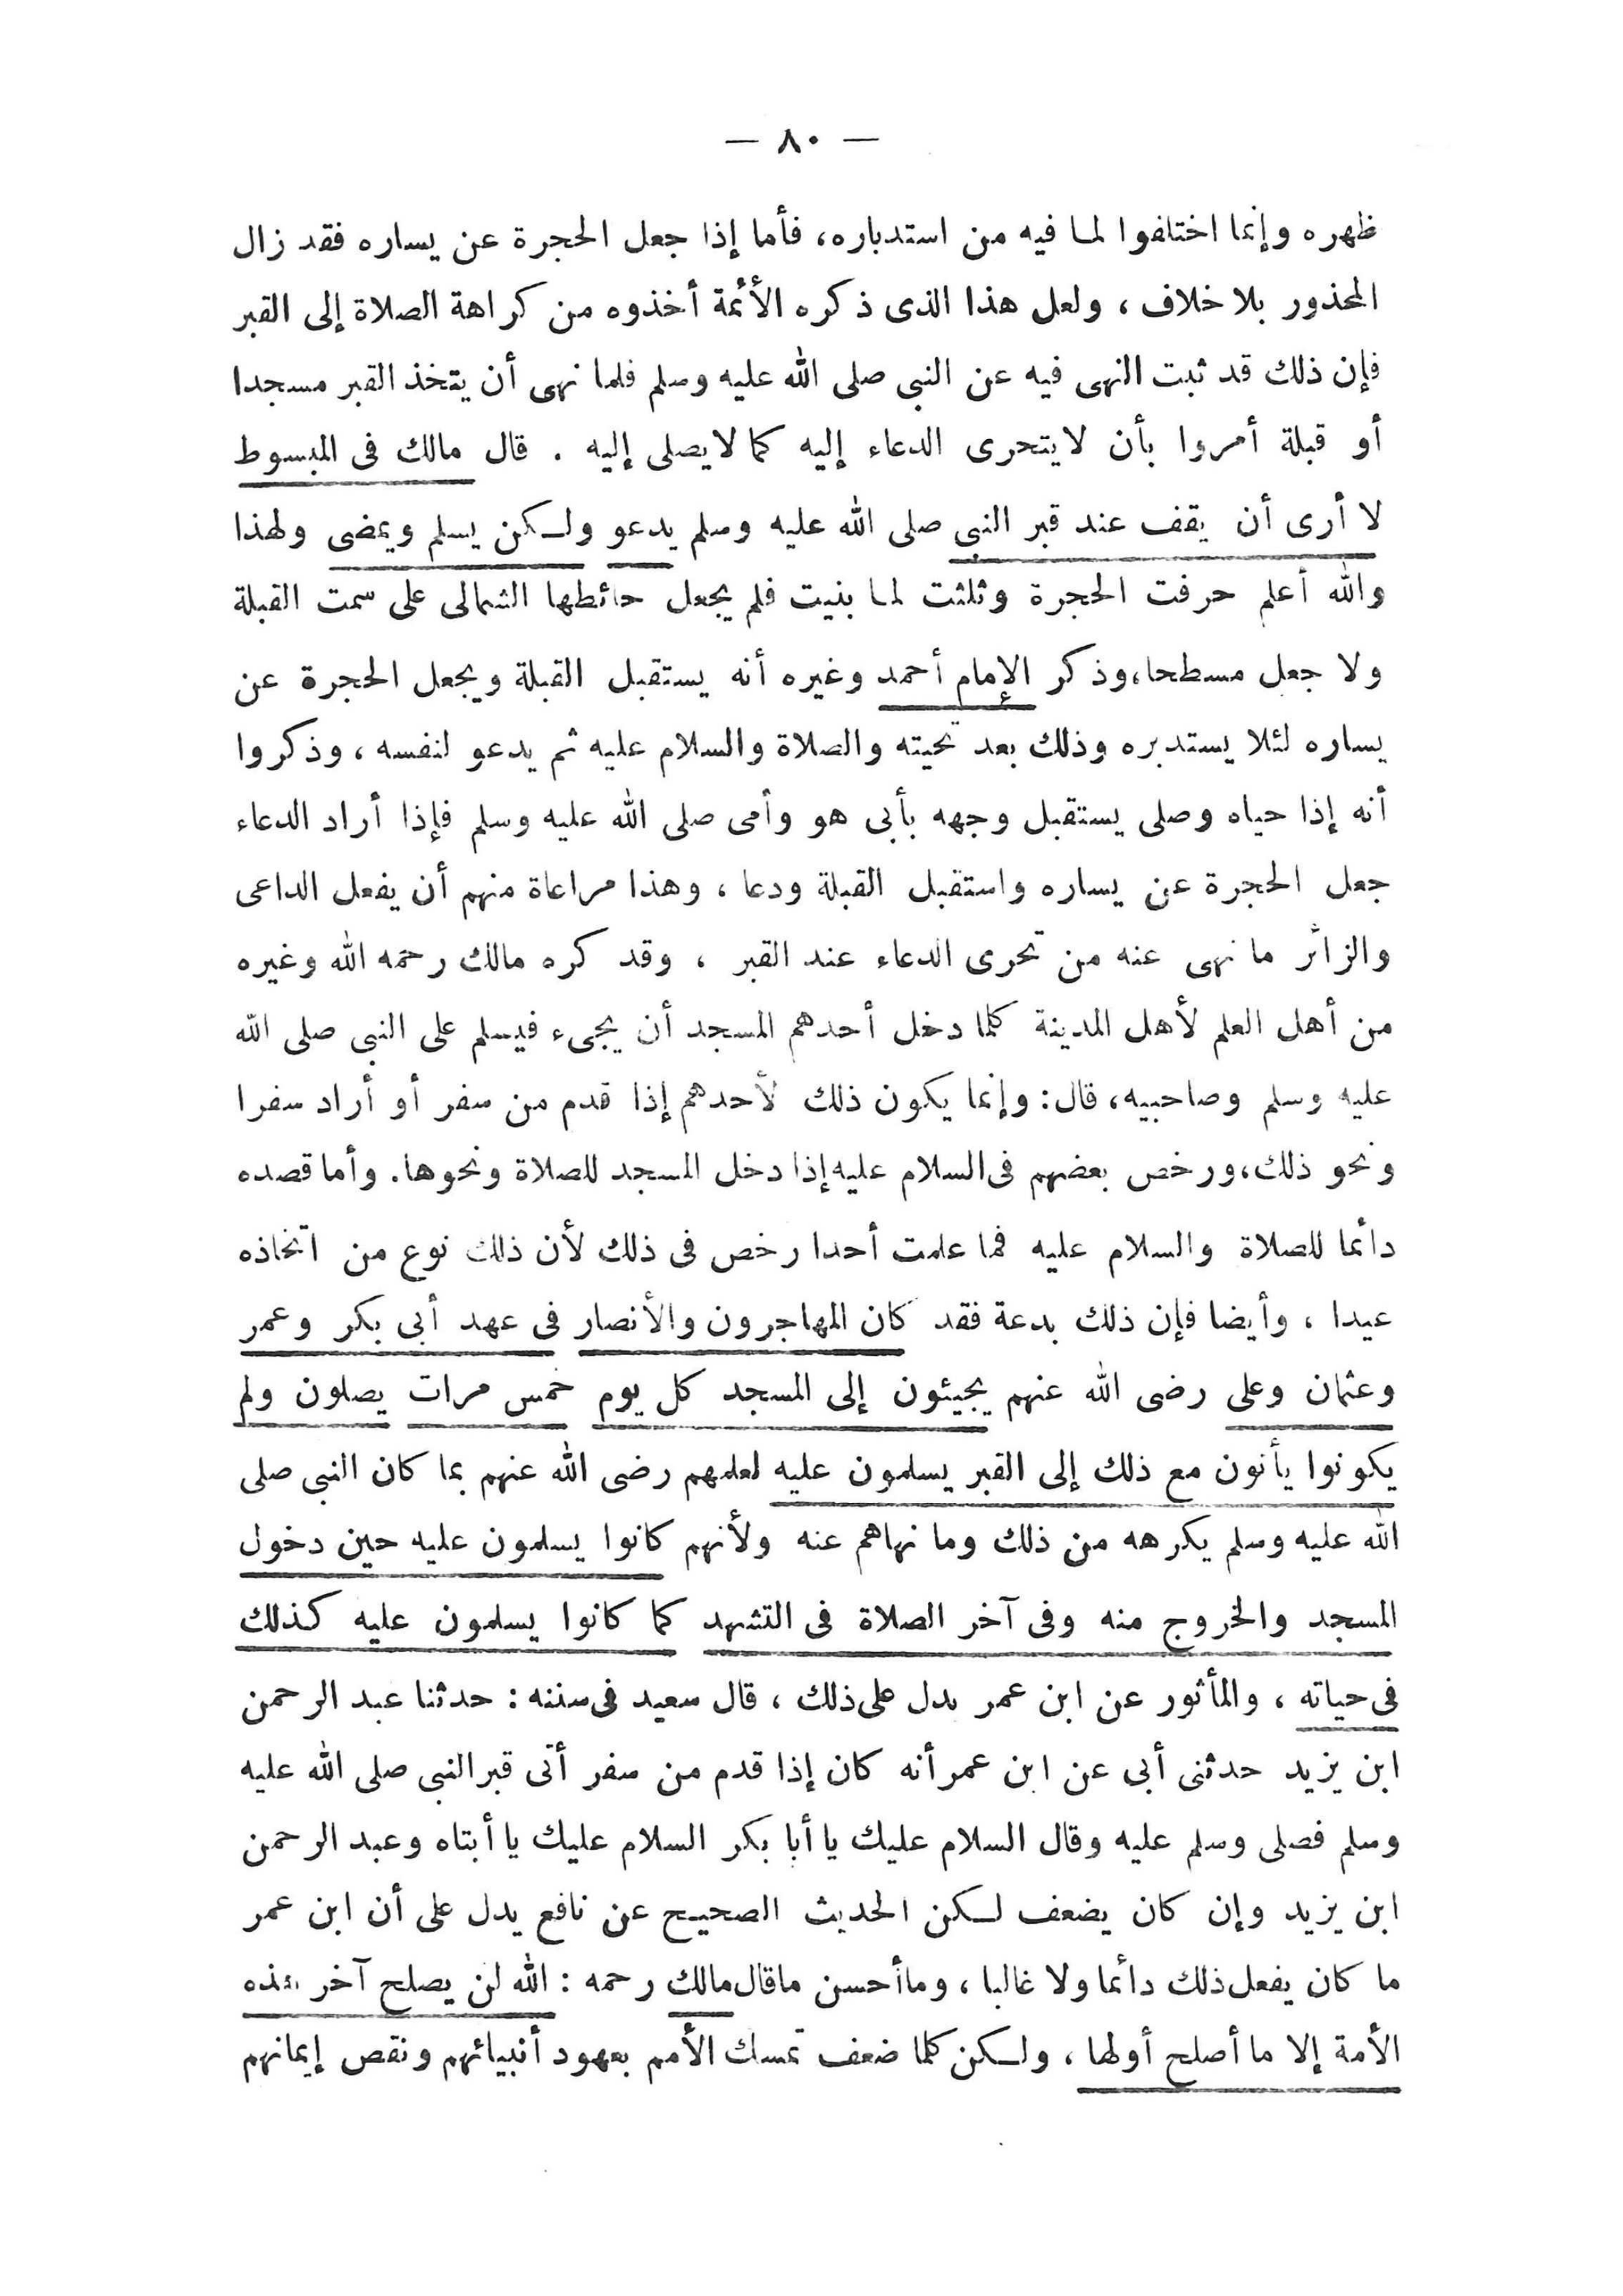 — ٨٠ —
ظهره وإنما اختلفوا لما فيه من استدباره، فأما إذا جعل الحجرة عن يساره فقد زال
المحذور بلا خلاف ، ولعل هذا الذى ذكره الأئمة أخذوه من كراهة الصلاة إلى القبر
فإن ذلك قد ثبت النهى فيه عن النبى صلى الله عليه وسلم فلما نهى أن يتخذ القبر مسجدا
أو قبلة أمروا بأن لا يتحرى الدعاء إليه كما لا يصلى إليه . قال مالك فى المبسوط
لا أرى أن يقف عند قبر النبى صلى الله عليه وسلم يدعو ولكن يسلم ويمضى ولهذا
والله أعلم حرفت الحجرة وثلثت لما بنيت فلم يجعل حائطها الشمالى على سمت القبلة
ولا جعل مسطحا، وذكر الإمام أحمد وغيره أنه يستقبل القبلة ويجعل الحجرة عن
يساره لئلا يستدبره وذلك بعد تحيته والصلاة والسلام عليه ثم يدعو لنفسه ، وذكروا
أنه إذا حياه وصلى يستقبل وجهه بأبى هو وأمى صلى الله عليه وسلم فإذا أراد الدعاء
جعل الحجرة عن يساره واستقبل القبلة ودعا ، وهذا مراعاة منهم أن يفعل الداعى
والزائر ما نهى عنه من تحرى الدعاء عند القبر ، وقد كره مالك رحمه الله وغيره
من أهل العلم لأهل المدينة كلما دخل أحدهم المسجد أن يجىء فيسلم على النبى صلى الله
عليه وسلم وصاحبيه، قال: وإنما يكون ذلك لأحدهم إذا قدم من سفر أو أراد سفرا
ونحو ذلك، ورخص بعضهم فى السلام عليه إذا دخل المسجد للصلاة ونحوها. وأما قصده
دائما للصلاة والسلام عليه فما علمت أحدا رخص فى ذلك لأن ذلك نوع من اتخاذه
عيدا ، وأيضا فإن ذلك بدعة فقد كان المهاجرون والأنصار فى عهد أبى بكر وعمر
وعثمان وعلى رضى الله عنهم يجيئون إلى المسجد كل يوم خمس مرات يصلون ولم
يكونوا يأتون مع ذلك إلى القبر يسلمون عليه لعلمهم رضى الله عنهم بما كان النبى صلى
الله عليه وسلم يكرهه من ذلك وما نهاهم عنه ولأنهم كانوا يسلمون عليه حين دخول
المسجد والخروج منه وفى آخر الصلاة فى التشهد كما كانوا يسلمون عليه كذلك
فى حياته ، والمأثور عن ابن عمر يدل على ذلك ، قال سعيد فى سننه : حدثنا عبد الرحمن
ابن يزيد حدثنى أبى عن ابن عمر أنه كان إذا قدم من سفر أتى قبر النبى صلى الله عليه
وسلم فصلى وسلم عليه وقال السلام عليك يا أبا بكر السلام عليك يا أبتاه وعبد الرحمن
ابن يزيد وإن كان يضعف لكن الحديث الصحيح عن نافع يدل على أن ابن عمر
ما كان يفعل ذلك دائما ولا غالبا ، وما أحسن ما قال مالك رحمه : الله لن يصلح آخر هذه
الأمة إلا ما أصلح أولها ، ولكن كلما ضعف تمسك الأمم بعهود أنبيائهم ونقص إيمانهم